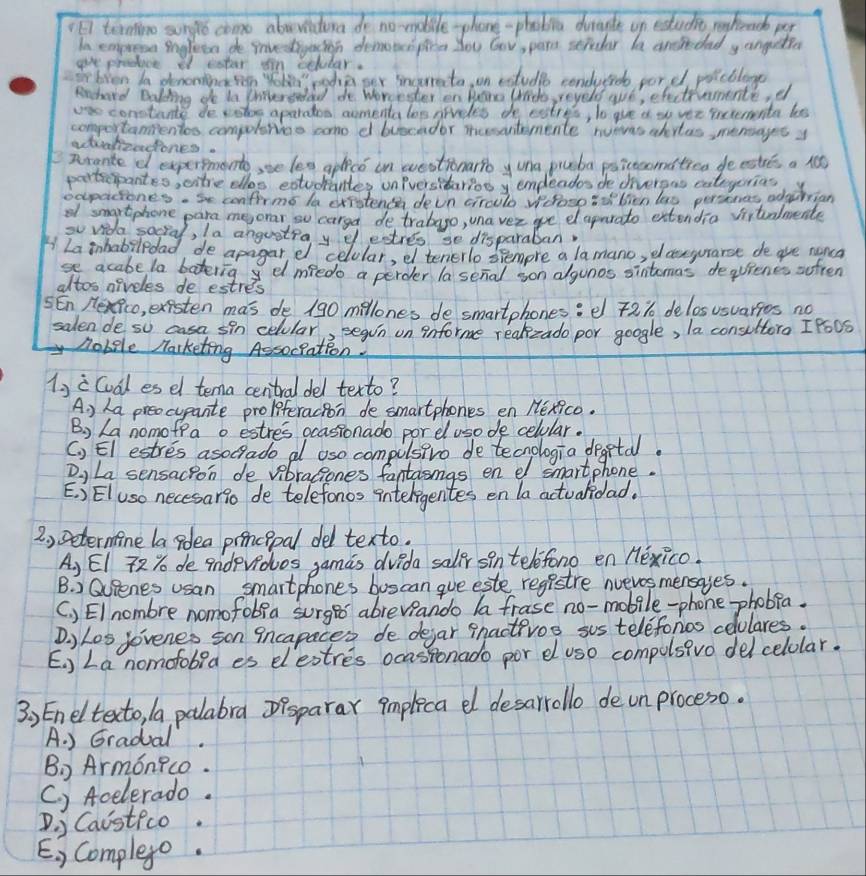 1 El término surgió como abreviatura de no-mobile-phone-phobia durante un estudio realizado por
la empresa inglesa de investigación demoscópica You Gov, para señalar la ansiedad y angustia
que produce el estar sin celular.
si bien la denominación "fobia" podría ser incorrecta, un estudio conducido por el psicólogo
Richard Balding de la Universidad de Worcester en Reino Unido, reveló que, efectivamente, el
uso constante de estos aparatos aumenta los niveles de estrés, lo que a su vez incrementa los
comportamientos compulsivos como el buscador incesantemente nuevas alertas, mensajes y
actualizaciones.
3 Durante el experimento, se les aplicó un cuestionario y una prueba psicosomática de estrés a 100
participantes, entre ellos estudiantes universitarios y empleados de diversas categorías y
ocupaciones. Se confirmó la existencia de un círculo vicioso: si bien las personas adquirían
el smartphone para mejorar su carga de trabajo, una vez que el aparato extendía virtualmente
su vida social, la angustia y el estrés se disparaban.
4 La inhabilidad de apagar el celular, el tenerlo siempre a la mano, el asegurarse de que nunca
se acabe la batería y el miedo a perder la señal son algunos síntomas de quienes sufren
altos niveles de estrés
5 En México, existen más de 190 millones de smartphones: el 72% de los usuarios no
salen de su casa sin celular, según un informe realizado por google, la consultora IPSOS
y Mobile Marketing Association.
1.) ¿Cuál es el tema central del texto?
A.) La preocupante proliferación de smartphones en México.
B.) La nomofia o estrés ocasionado por el uso de celular.
C.) El estrés asociado al uso compulsivo de tecnología digital.
D.) La sensación de vibraciones fantasmas en el smartphone.
E.) El uso necesario de telefonos inteligentes en la actualidad.
2.) Determine la idea principal del texto.
A.) El 72% de individuos jamás olvida salir sin teléfono en México.
B.) Quienes usan smartphones buscan que este registre nuevos mensajes.
C.) El nombre nomofobia surgió abreviando la frase no-mobile-phone-phobia.
D.) Los jóvenes son incapaces de dejar inactivos sus teléfonos celulares.
E.) La nomofobia es el estrés ocasionado por el uso compulsivo del celular.
3.) En el texto, la palabra Disparar implica el desarrollo de un proceso.
A.) Gradual.
B.) Armónico.
C.) Acelerado.
D.) Caústico.
E.) Complejo.